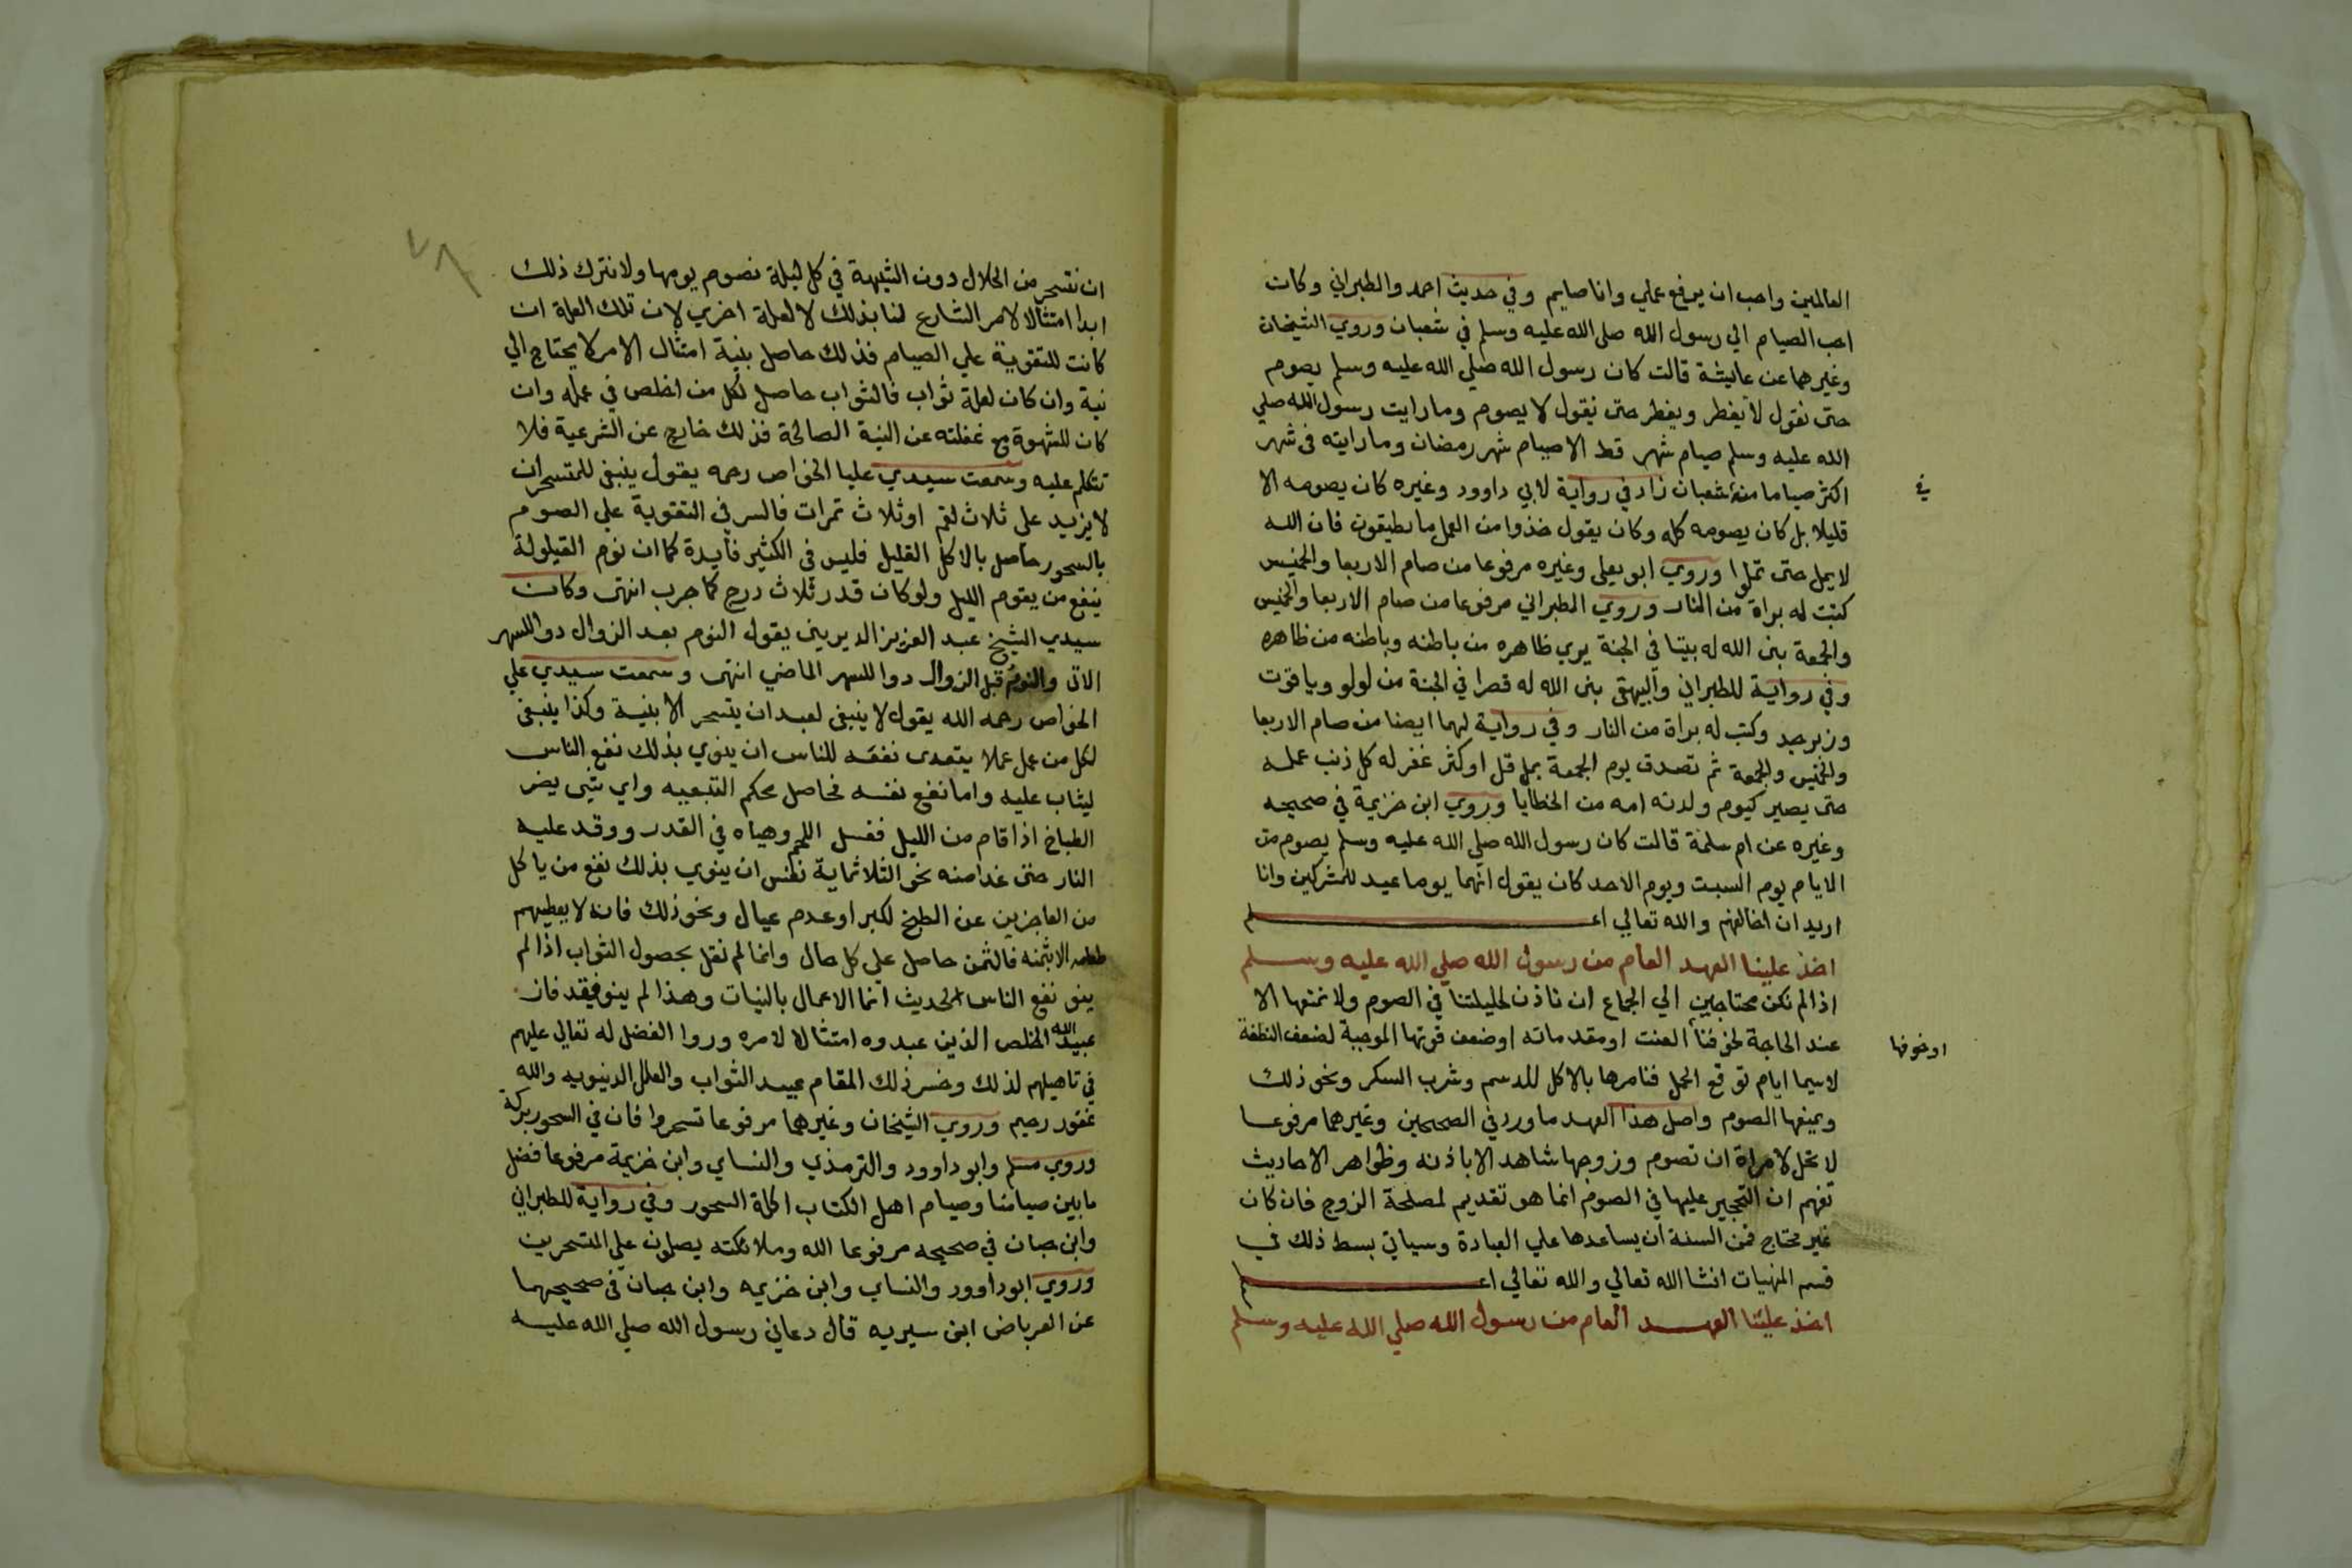 العالمين واحب ان يرفع عملي وانا صايم وفي حديث احمد والطبراني وكان
احب الصيام الي رسول الله صلى الله عليه وسلم في شعبان وروي الشيخان
وغيرهما عن عايشة قالت كان رسول الله صلي الله عليه وسلم يصوم
حتى نقول لا يفطر ويفطر حتى نقول لا يصوم وما رايت رسول الله صلي
الله عليه وسلم صيام شهر قط الا صيام شهر رمضان وما رايته في شهر
اكثر صياما منه شعبان زاد في رواية لابي داوود وغيره كان يصومه الا
في
قليلا بل كان يصومه كله وكان يقول خذوا من العمل ما تطيقون فان الله
لا يمل حتى تملوا وروي ابو يعلى وغيره مرفوعا من صام الاربعا والخميس
كتبت له براة من النار وروي الطبراني مرفوعا من صام الاربعا والخميس
والجمعة بنى الله له بيتا في الجنة يري ظاهره من باطنه وباطنه من ظاهره
وفي رواية للطبراني والبيهقى بنى الله له قصرا في الجنة من لولو وياقوت
وزبرجد وكتب له براة من النار وفي رواية لهما ايضا من صام الاربعا
والخميس والجمعة ثم تصدق يوم الجمعة بما قل او كثر غفر له كل ذنب عمله
حتى يصير كيوم ولدته امه من الخطايا وروي ابن خزيمة في صحيحه
وغيره عن ام سلمة قالت كان رسول الله صلي الله عليه وسلم يصوم من
الايام يوم السبت ويوم الاحد كان يقول انهما يوما عيد للمشركين وانا
اريد ان اخالفهم والله تعالي اعلم
اخذ علينا العهد العام من رسول الله صلي الله عليه وسلم
اذا لم نكن محتاجين الي الجماع ان ناذن لحليلتنا في الصوم ولا نمنعها الا
عند الحاجة لخوفنا العنت او مقدماته او ضعف قوتها الموجبة لضعف النطفة
او خوفها
لاسيما ايام توقع الحمل فنامرها بالاكل للدسم وشرب السكر ونحو ذلك
ويمنعها الصوم واصل هذا العهد ما ورد في الصحيحين وغيرهما مرفوعا
لا تحل لامراة ان تصوم وزوجها شاهد الا باذنه وظواهر الاحاديث
تفهم ان التحجير عليها في الصوم انما هو تقديم لمصلحة الزوج فان كان
غير محتاج فمن السنة ان يساعدها علي العبادة وسياتي بسط ذلك في
قسم المنهيات انشا الله تعالي والله تعالي اعلم
اخذ علينا العهد العام من رسول الله صلي الله عليه وسلم
٧٨
ان نتسحر من الحلال دون الشبهة في كل ليلة نصوم يومها ولا نترك ذلك
ابدا امتثالا لامر الشارع لنا بذلك لا لعلة اخري لان تلك العلة ان
كانت للتقوية علي الصيام فذلك حاصل بنية امتثال الامر لا يحتاج الي
نية وان كان لعلة ثواب فالثواب حاصل لكل من اخلص في عمله وان
كان للشهوة مع غفلته عن النية الصالحة فذلك خارج عن الشرعية فلا
نتكلم عليه وسمعت سيدي عليا الخواص رحمه يقول ينبغي للمتسحر ان
لا يزيد على ثلاث لقم او ثلاث تمرات فالسر في التقوية علي الصوم
بالسحور حاصل بالاكل القليل فليس في الكثير فايدة كما ان نوم القيلولة
ينفع من يقوم الليل ولو كان قدر ثلاث درج كما جرب انتهى وكان
سيدي الشيخ عبد العزيز الديريني يقول النوم بعد الزوال دوا للسهر
الاتي والنوم قبل الزوال دوا للسهر الماضي انتهى وسمعت سيدي علي
الخواص رحمه الله يقول لا ينبغي لعبد ان يتسحر الا بنية وكذا ينبغي
لكل من عمل عملا يتعدى نفعه للناس ان ينوي بذلك نفع الناس
ليثاب عليه واما نفع نفسه فحاصل بحكم التبعيه واي شي يضر
الطباخ اذا قام من الليل فغسل اللحم وهياه في القدر ووقد عليه
النار حتى غدا منه نحو الثلاثماية نفس ان ينوي بذلك نفع من ياكل
من العاجزين عن الطبخ لكبر او عدم عيال ونحو ذلك فانه لا يعطيهم
طعامه الا بثمنه فالثمن حاصل علي كل حال وانما لم نقل بحصول الثواب اذا لم
ينو نفع الناس الحديث انما الاعمال بالنيات وهذا لم ينو فيقد فاز
عبيد الله الخلص الذين عبدوه امتثالا لامره وروا الفضل له تعالي عليهم
في تاهيلهم لذلك وخسر ذلك المقام عبيد الثواب والعلل الدنيويه والله
غفور رحيم وروي الشيخان وغيرهما مرفوعا تسحروا فان في السحور بركة
وروي مسلم وابو داوود والترمذي والنساي وابن خزيمة مرفوعا فضل
ما بين صيامنا وصيام اهل الكتاب اكلة السحور وفي رواية للطبراني
وابن حبان في صحيحه مرفوعا الله وملائكته يصلون علي المتسحرين
وروي ابو داوود والنساي وابن خزيمه وابن حبان في صحيحهما
عن العرباض ابن سيريه قال دعاني رسول الله صلي الله عليه